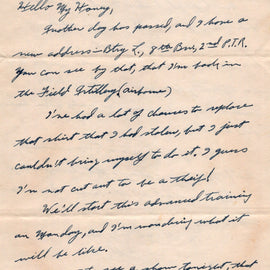 Hello My Honey,
Another day has passed, and I have a
new address – Btry L, 8th Bn, 2nd P.T.R.
You can see by that, that I'm back in
the Field Artillery (airborne)
I've had a lot of chances to replace
that shirt that I had stolen, but I just
couldn't bring myself to do it, I guess
I'm not cut out to be a theif!
We'll start this advanced training
on Monday, and I'm wondering what it
will be like.
see a show tonight, that